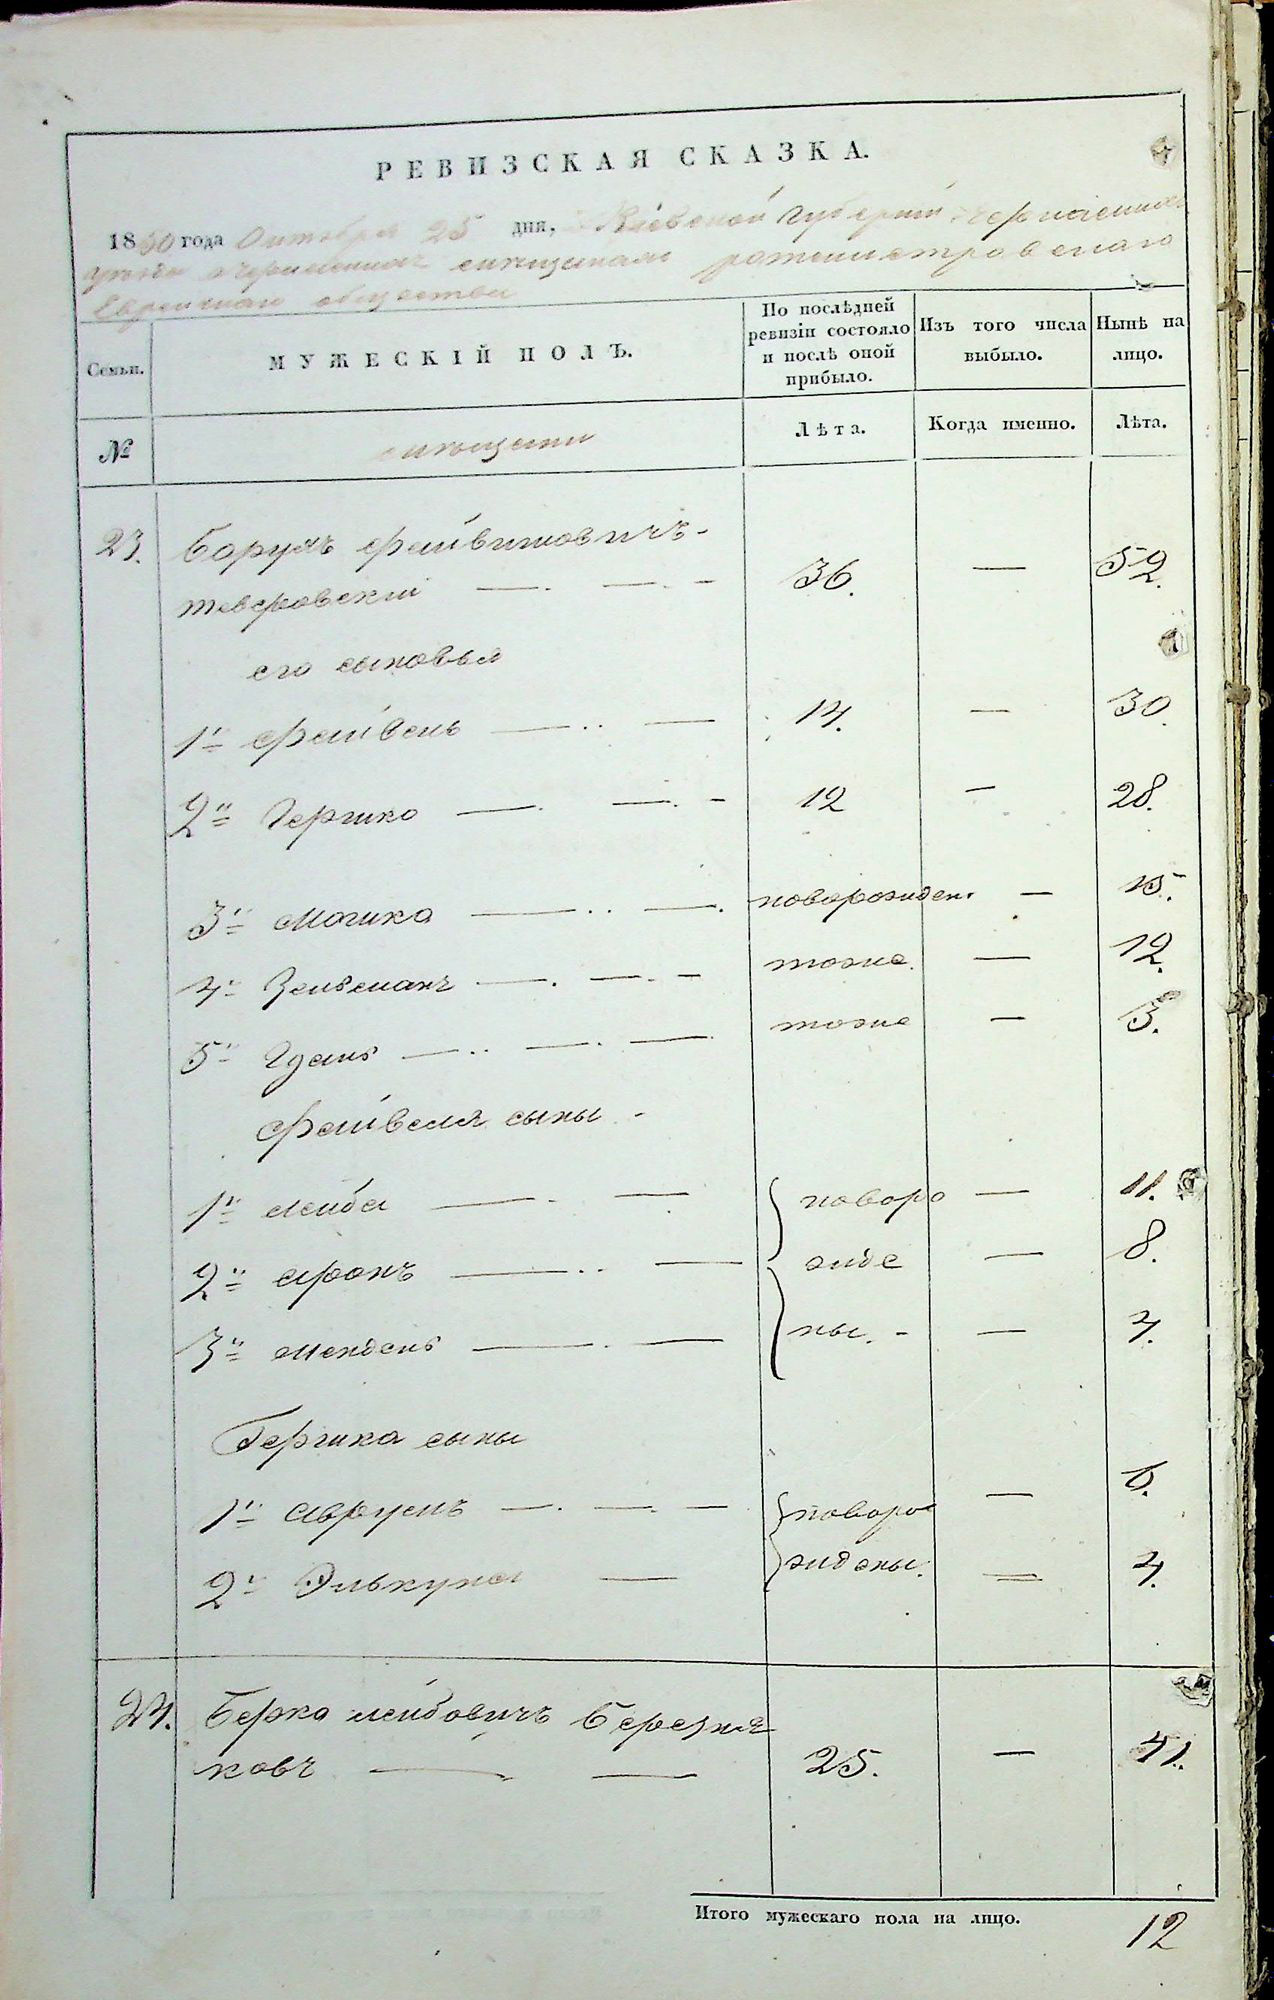 РЕВИЗСКАЯ СКАЗКА.
1850 года Октября 25 дня, Кіевской Губерніи
Еврейскаго общества
Семьи.
МУЖЕСКІЙ ПОЛЪ.
По послѣдней ревизіи состояло и послѣ оной прибыло.
Изъ того числа выбыло.
Нынѣ на лицо.
№
мѣщане
Лѣта.
Когда именно.
Лѣта.
23. Борухъ Файвишовичъ -
Тверовскій — — - 36. — 52.
его сыновья
1й Файвель — — 14. — 30.
2й Гершко — — - 12 — 28.
3й Мошко — — новорожден. — 15.
4й Зельманъ — — - тоже. — 12.
5й — — — тоже — 3.
Файвеля сыны -
1й Лейба — — новоро — 11.
2й Аронъ — — жде — 8.
3й Мендель — — ны. - — 4.
Гершка сыны
1й Аврумъ — — — новоро — 6.
2й Элькуна — ждены. — 4.
24. Берко Лейбовичъ Березня
ковъ — — 25. — 41.
Итого мужескаго пола на лицо. 12